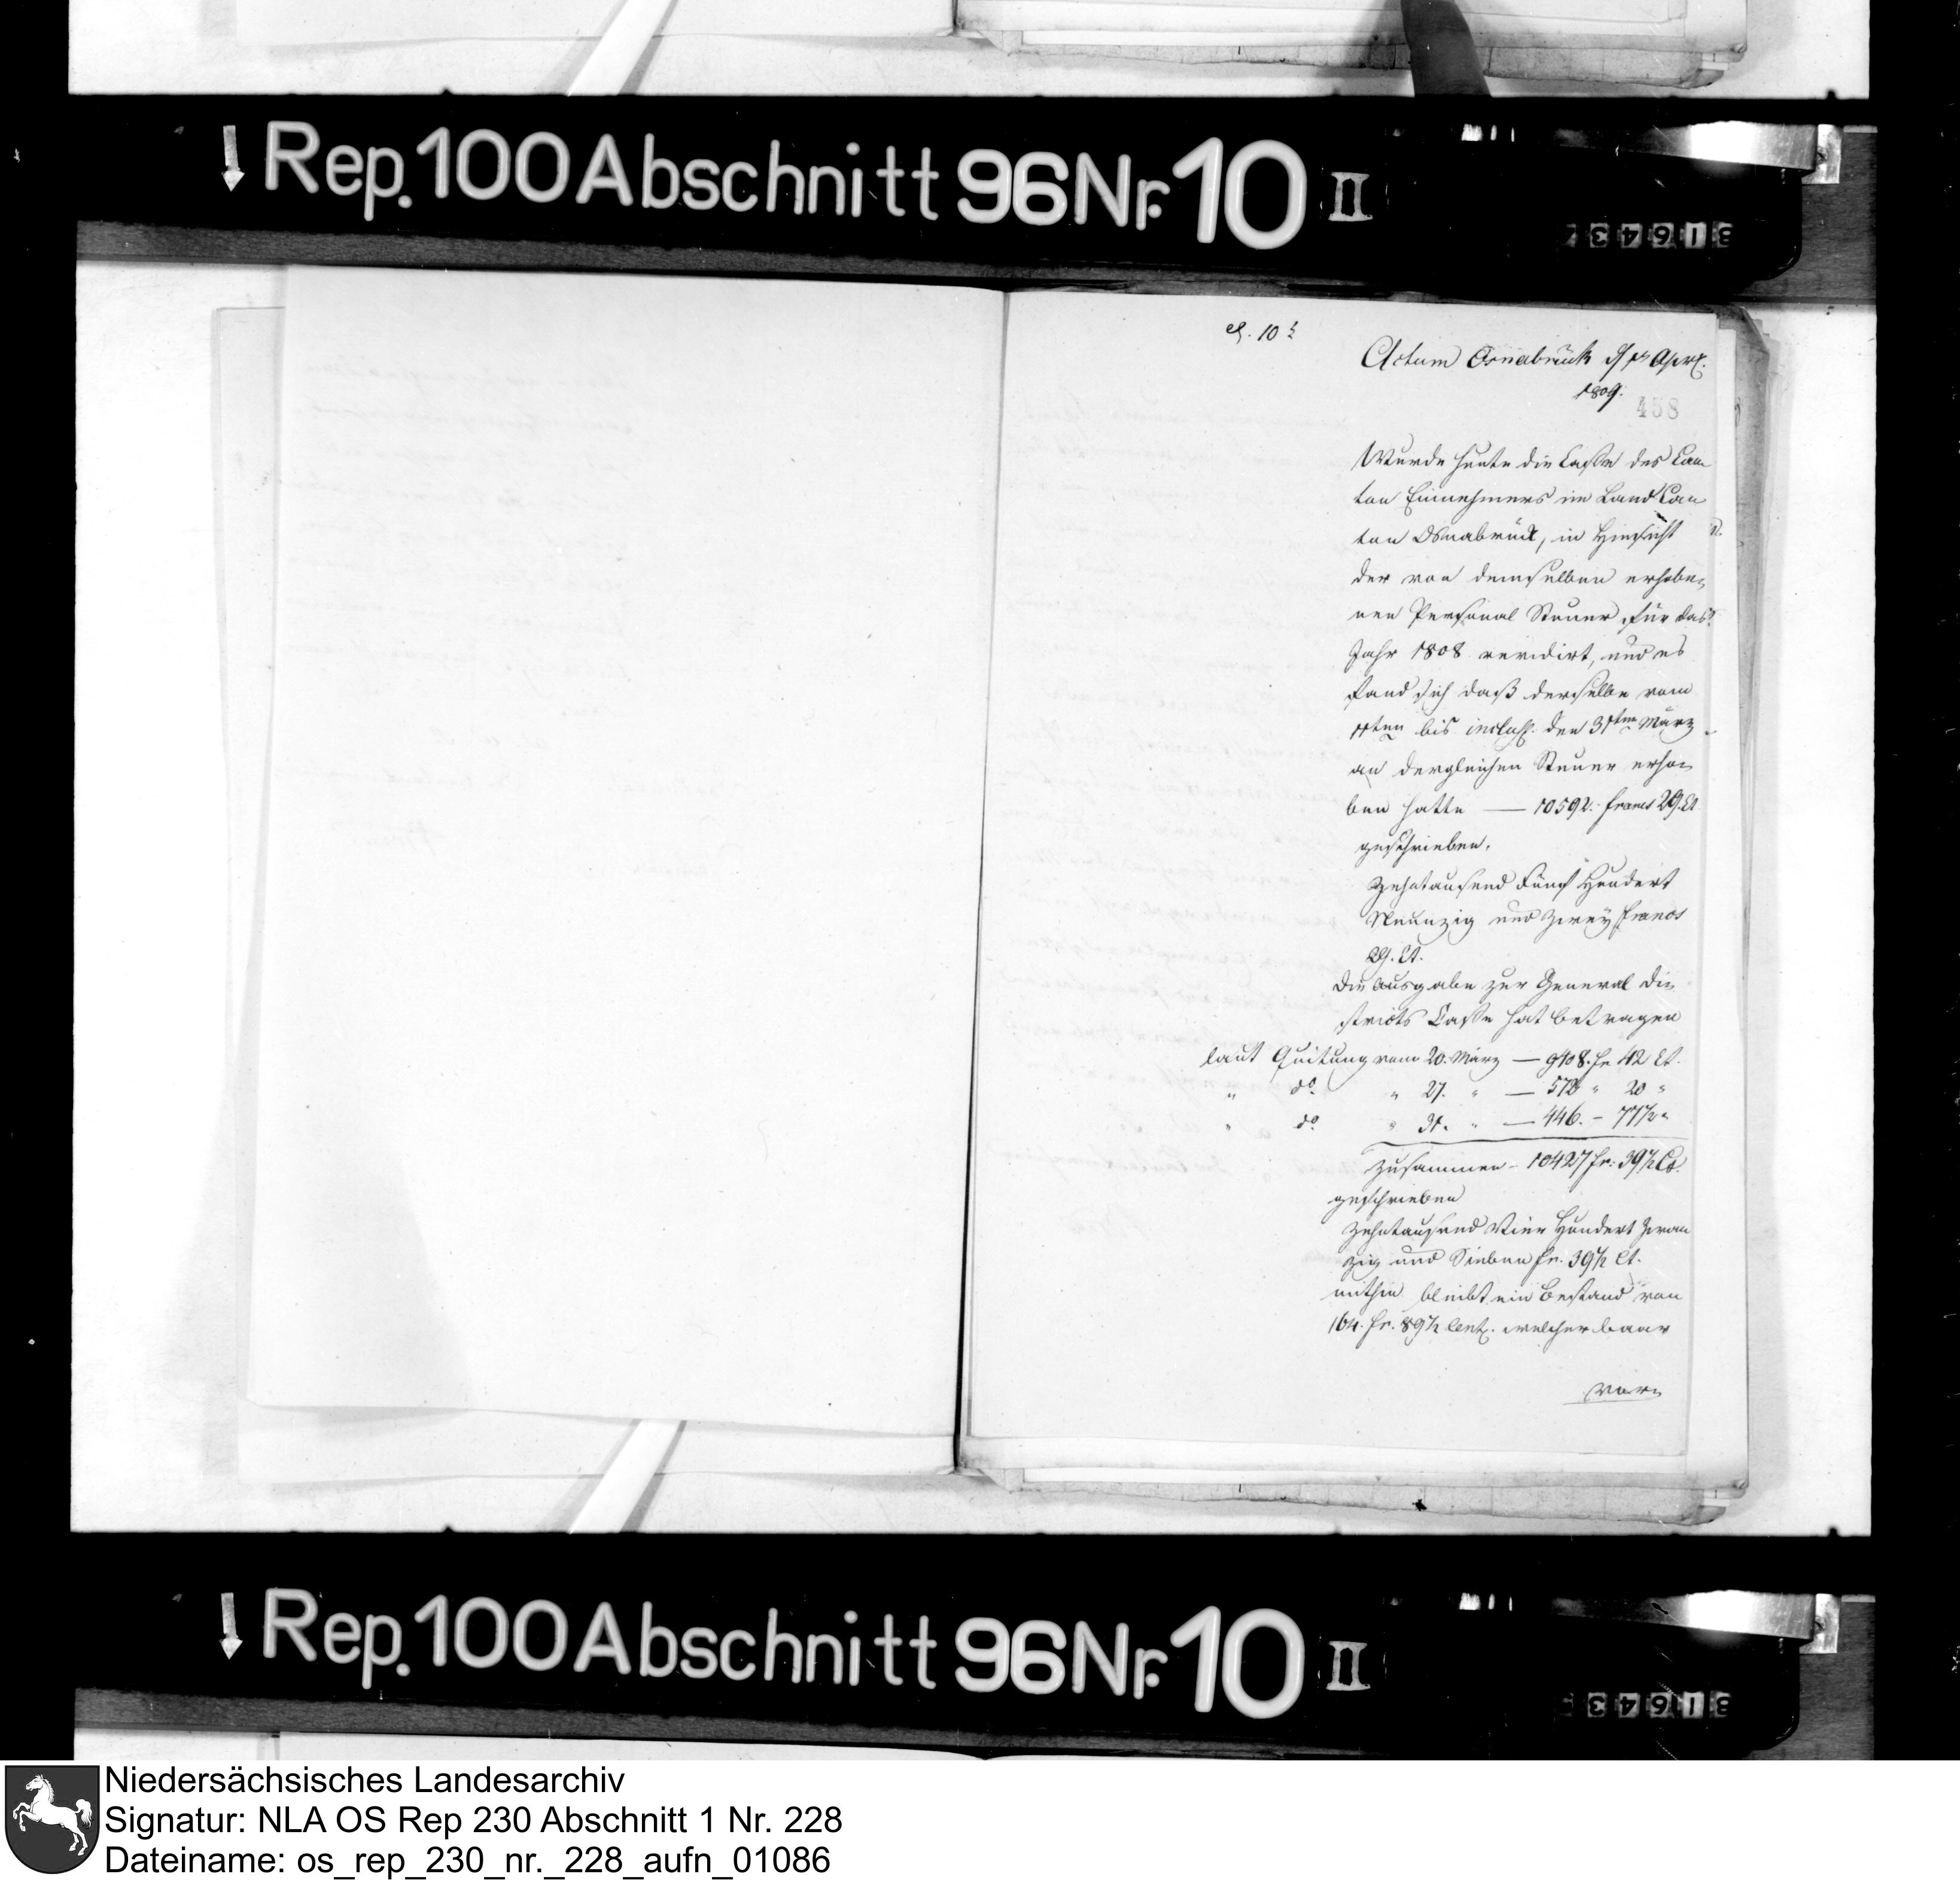 Rep. 100 Abschnitt 96 Nr. 10 II
31643
Actum Osnabrück d 1t Aprl.
1809.
458
Wurde heute die Casse des Can
ton Einnehmers im Land Can
ton Osnabrück, in Hinsicht
der von demselben erhobe-
nen Personal Steuer für das
Jahr 1808 revidirt, und es
fand sich daß derselbe vom
1ten bis inclus. den 31ten März
an dergleichen Steuer erho-
ben hatte — 10592. francs 29. Ct
geschrieben.
Zehntausend Fünf Hundert
Neunzig und Zwey francs
29. Ct.
Die Ausgabe zur General Di-
stricts Casse hat betragen
laut Quitung vom 20. März — 9408. fr 42 Ct.
" do. " 27. " — 572 " 20 "
" do. " 31. " — 446. – 77½ "
Zusammen – 10427 fr: 39½ Ct.
geschrieben
Zehntausend Vier Hundert Zwan
zig und Sieben fr. 39½ Ct.
mithin bleibt ein Bestand von
164. fr. 89½ Cent. welcher baar
vor-
Rep. 100 Abschnitt 96 Nr. 10 II
31643
Niedersächsisches Landesarchiv
Signatur: NLA OS Rep 230 Abschnitt 1 Nr. 228
Dateiname: os_rep_230_nr._228_aufn_01086